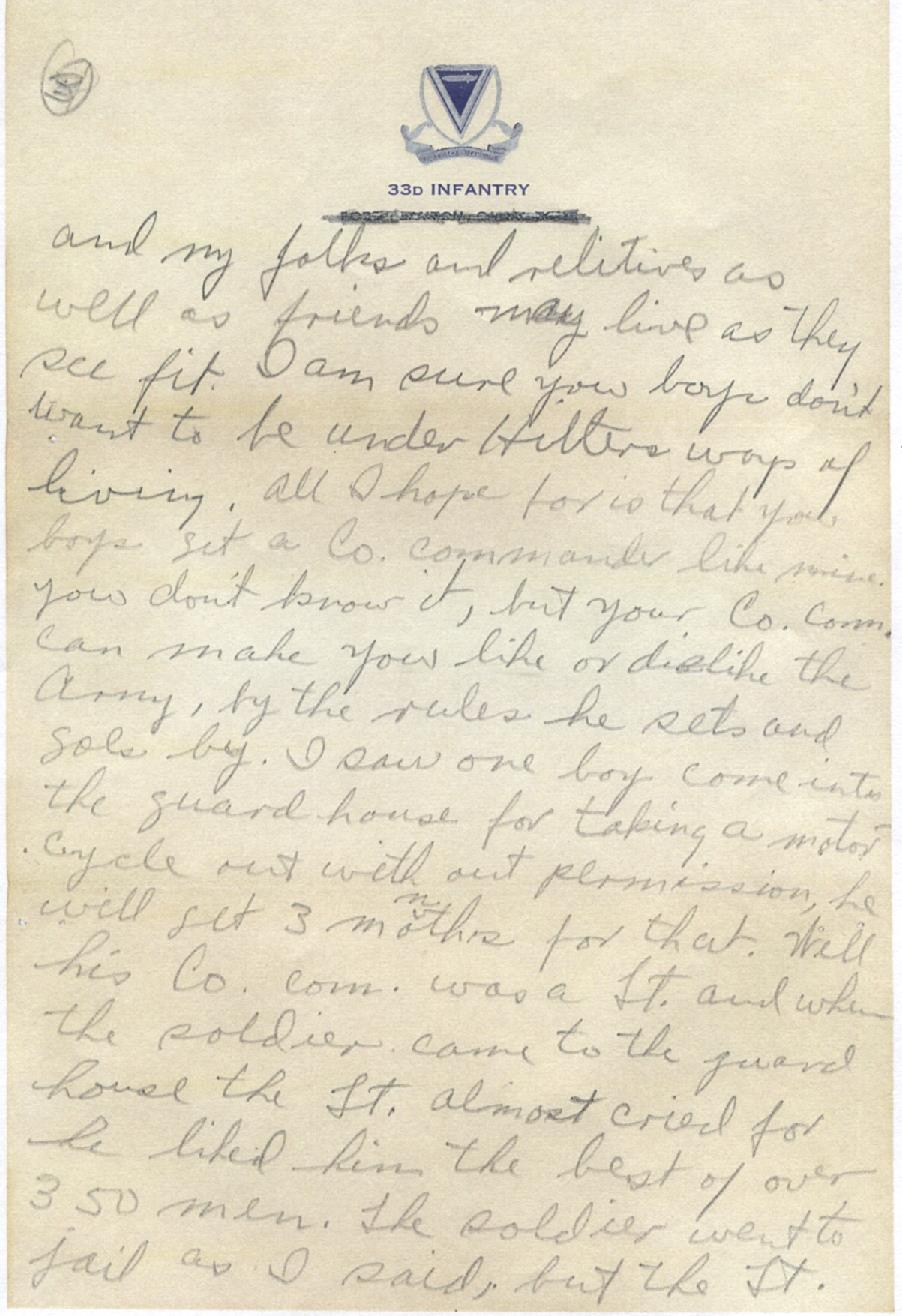 33D INFANTRY
and my folks and relitives as
well as friends may live as they
see fit. I am sure you boys don't
want to be under Hilters ways of
living. All I hope for is that you
boys get a Co. commander like mine.
you don't know it, but your Co. Comm.
can make you like or dislike the
Army, by the rules he sets and
goes by. I saw one boy come into
the guard house for taking a motor
cycle out with out permission, he
will get 3 months for that. Well
his Co. com. was a Lt. and when
the soldier came to the guard
house the Lt. almost cried for
he liked him the best of over
350 men. The soldier went to
jail as I said, but the Lt.